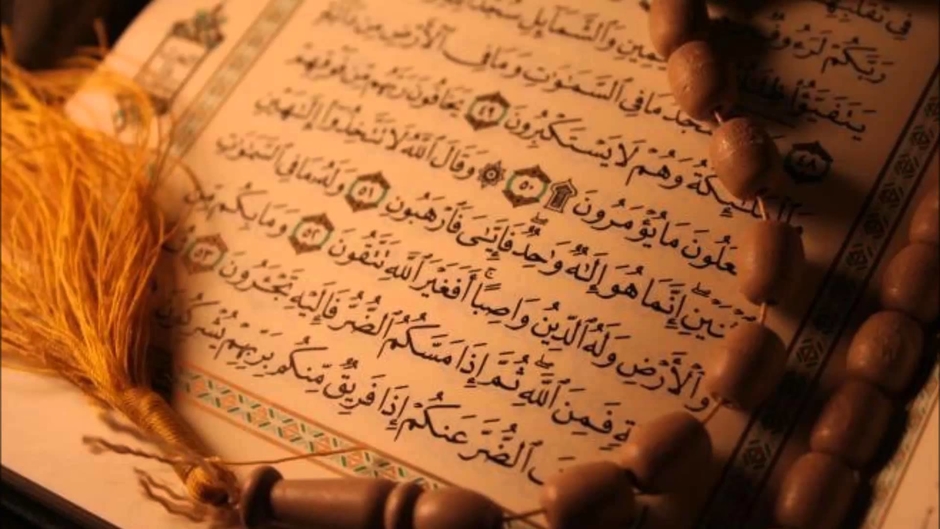 فِى تَقَلُّبِهِمْ
رَبَّكُمْ لَرَءُوفٌ
يَتَفَيَّؤُا۟ ظِلَٰلُهُۥ وَٱلشَّمَآئِلِ سُجَّدًا
٤٨ مَا فِى ٱلسَّمَٰوَٰتِ وَمَا فِى ٱلْأَرْضِ مِن
وَهُمْ لَا يَسْتَكْبِرُونَ ٤٩ يَخَافُونَ رَبَّهُم مِّن فَوْقِهِمْ
مَا يُؤْمَرُونَ ۩ ٥٠ ۞ وَقَالَ ٱللَّهُ لَا تَتَّخِذُوٓا۟ إِلَٰهَيْنِ
إِنَّمَا هُوَ إِلَٰهٌ وَٰحِدٌ ۖ فَإِيَّٰىَ فَٱرْهَبُونِ ٥١ وَلَهُۥ مَا فِى ٱلسَّمَٰوَٰتِ
وَٱلْأَرْضِ وَلَهُ ٱلدِّينُ وَاصِبًا ۚ أَفَغَيْرَ ٱللَّهِ تَتَّقُونَ ٥٢ وَمَا بِكُم مِّن
فَمِنَ ٱللَّهِ ۖ ثُمَّ إِذَا مَسَّكُمُ ٱلضُّرُّ فَإِلَيْهِ تَجْـَٔرُونَ ٥٣
ٱلضُّرَّ عَنكُمْ إِذَا فَرِيقٌ مِّنكُم بِرَبِّهِمْ يُشْرِكُونَ